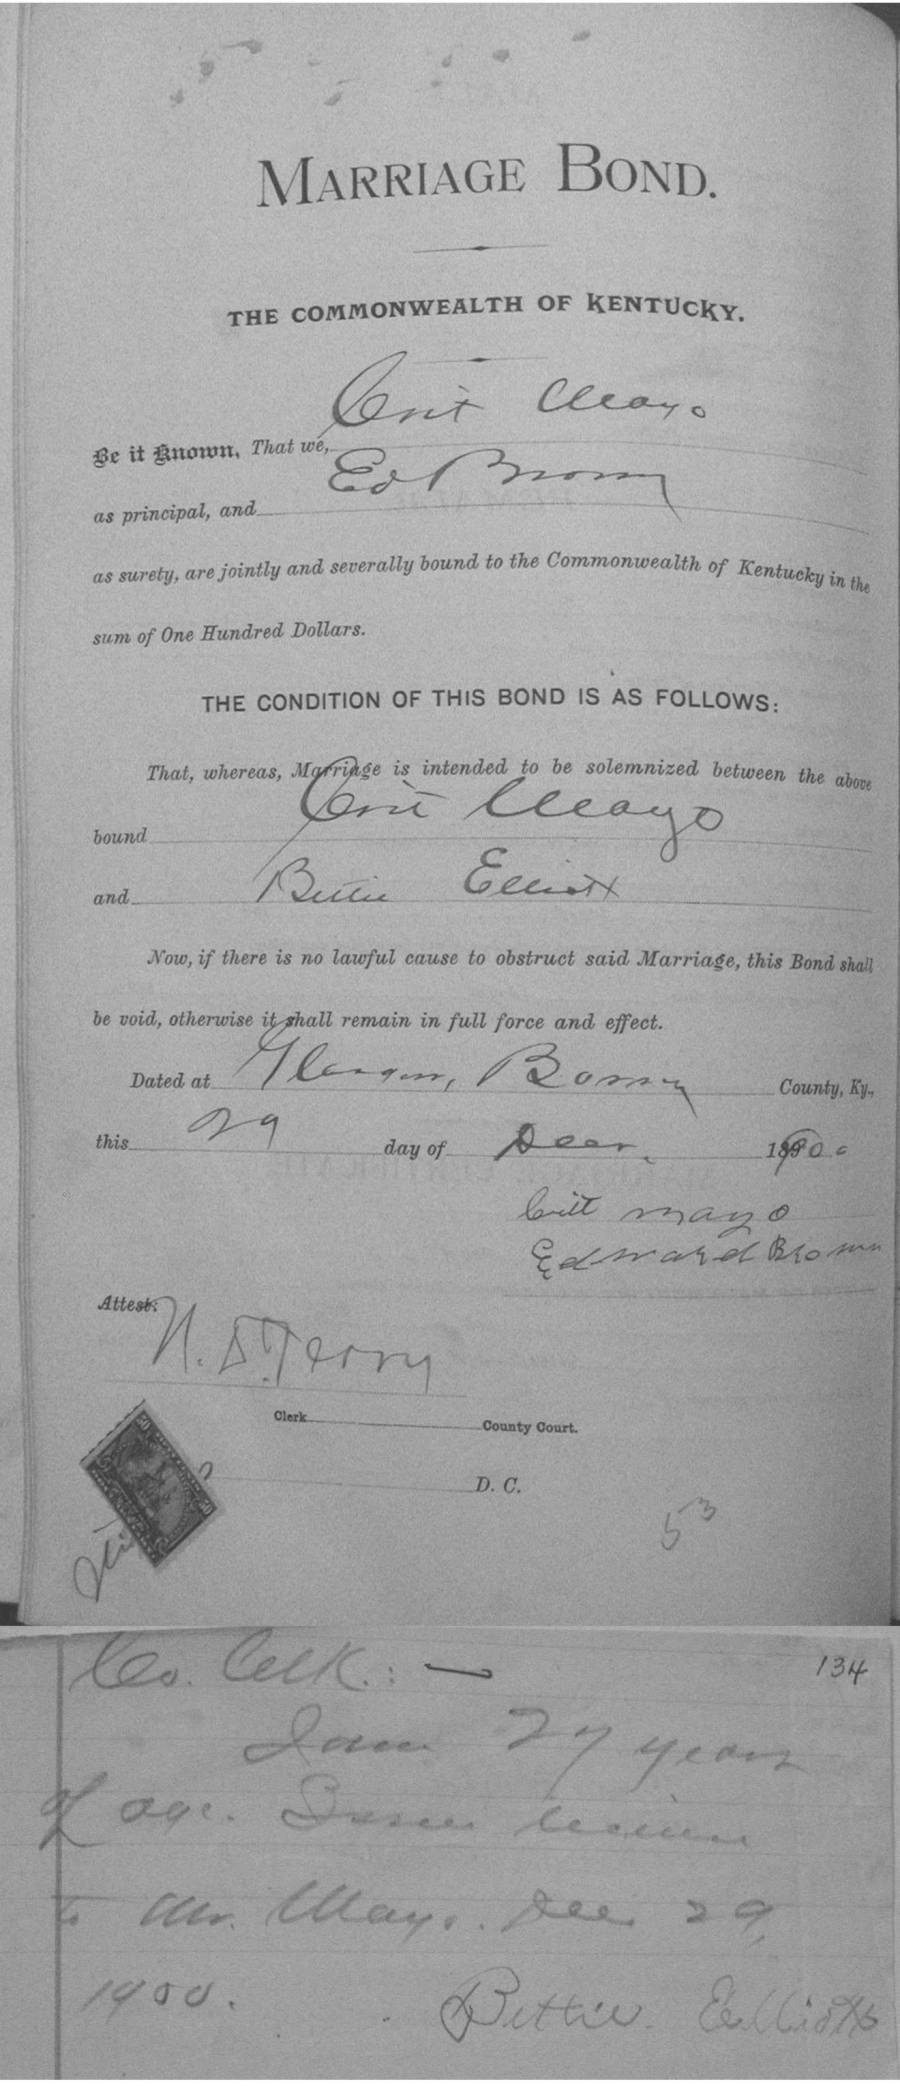 MARRIAGE BOND.
THE COMMONWEALTH OF KENTUCKY.
Be it Known, That we, Crit Mayo
as principal, and Ed Brown
as surety, are jointly and severally bound to the Commonwealth of Kentucky in the
sum of One Hundred Dollars.
THE CONDITION OF THIS BOND IS AS FOLLOWS:
That, whereas, Marriage is intended to be solemnized between the above
bound Crit Mayo
and Bettie Elliott
Now, if there is no lawful cause to obstruct said Marriage, this Bond shall
be void, otherwise it shall remain in full force and effect.
Dated at Glasgow, Barren County, Ky.,
this 29 day of Decr. 1900
Critt mayo
Edward Brown
Attest:
N. S. Terry
Clerk County Court.
D. C.
53
Co. Clk.: —
134
I am 27 years
of age. Issue license
to Mr. Mayo. Dec 29,
1900.
Bettie. Elliott